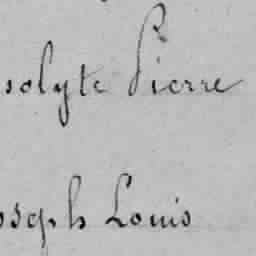 solyte Pierre
oseph Louis